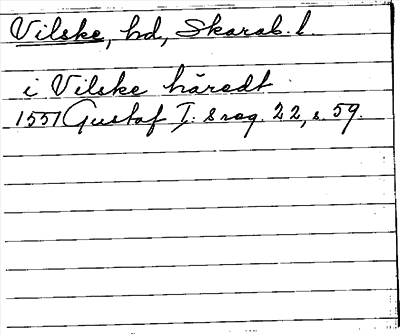 Vilske, hd, Skarab. l.
i Vilske häredt
1551 Gustaf I:s reg. 22, s. 59.